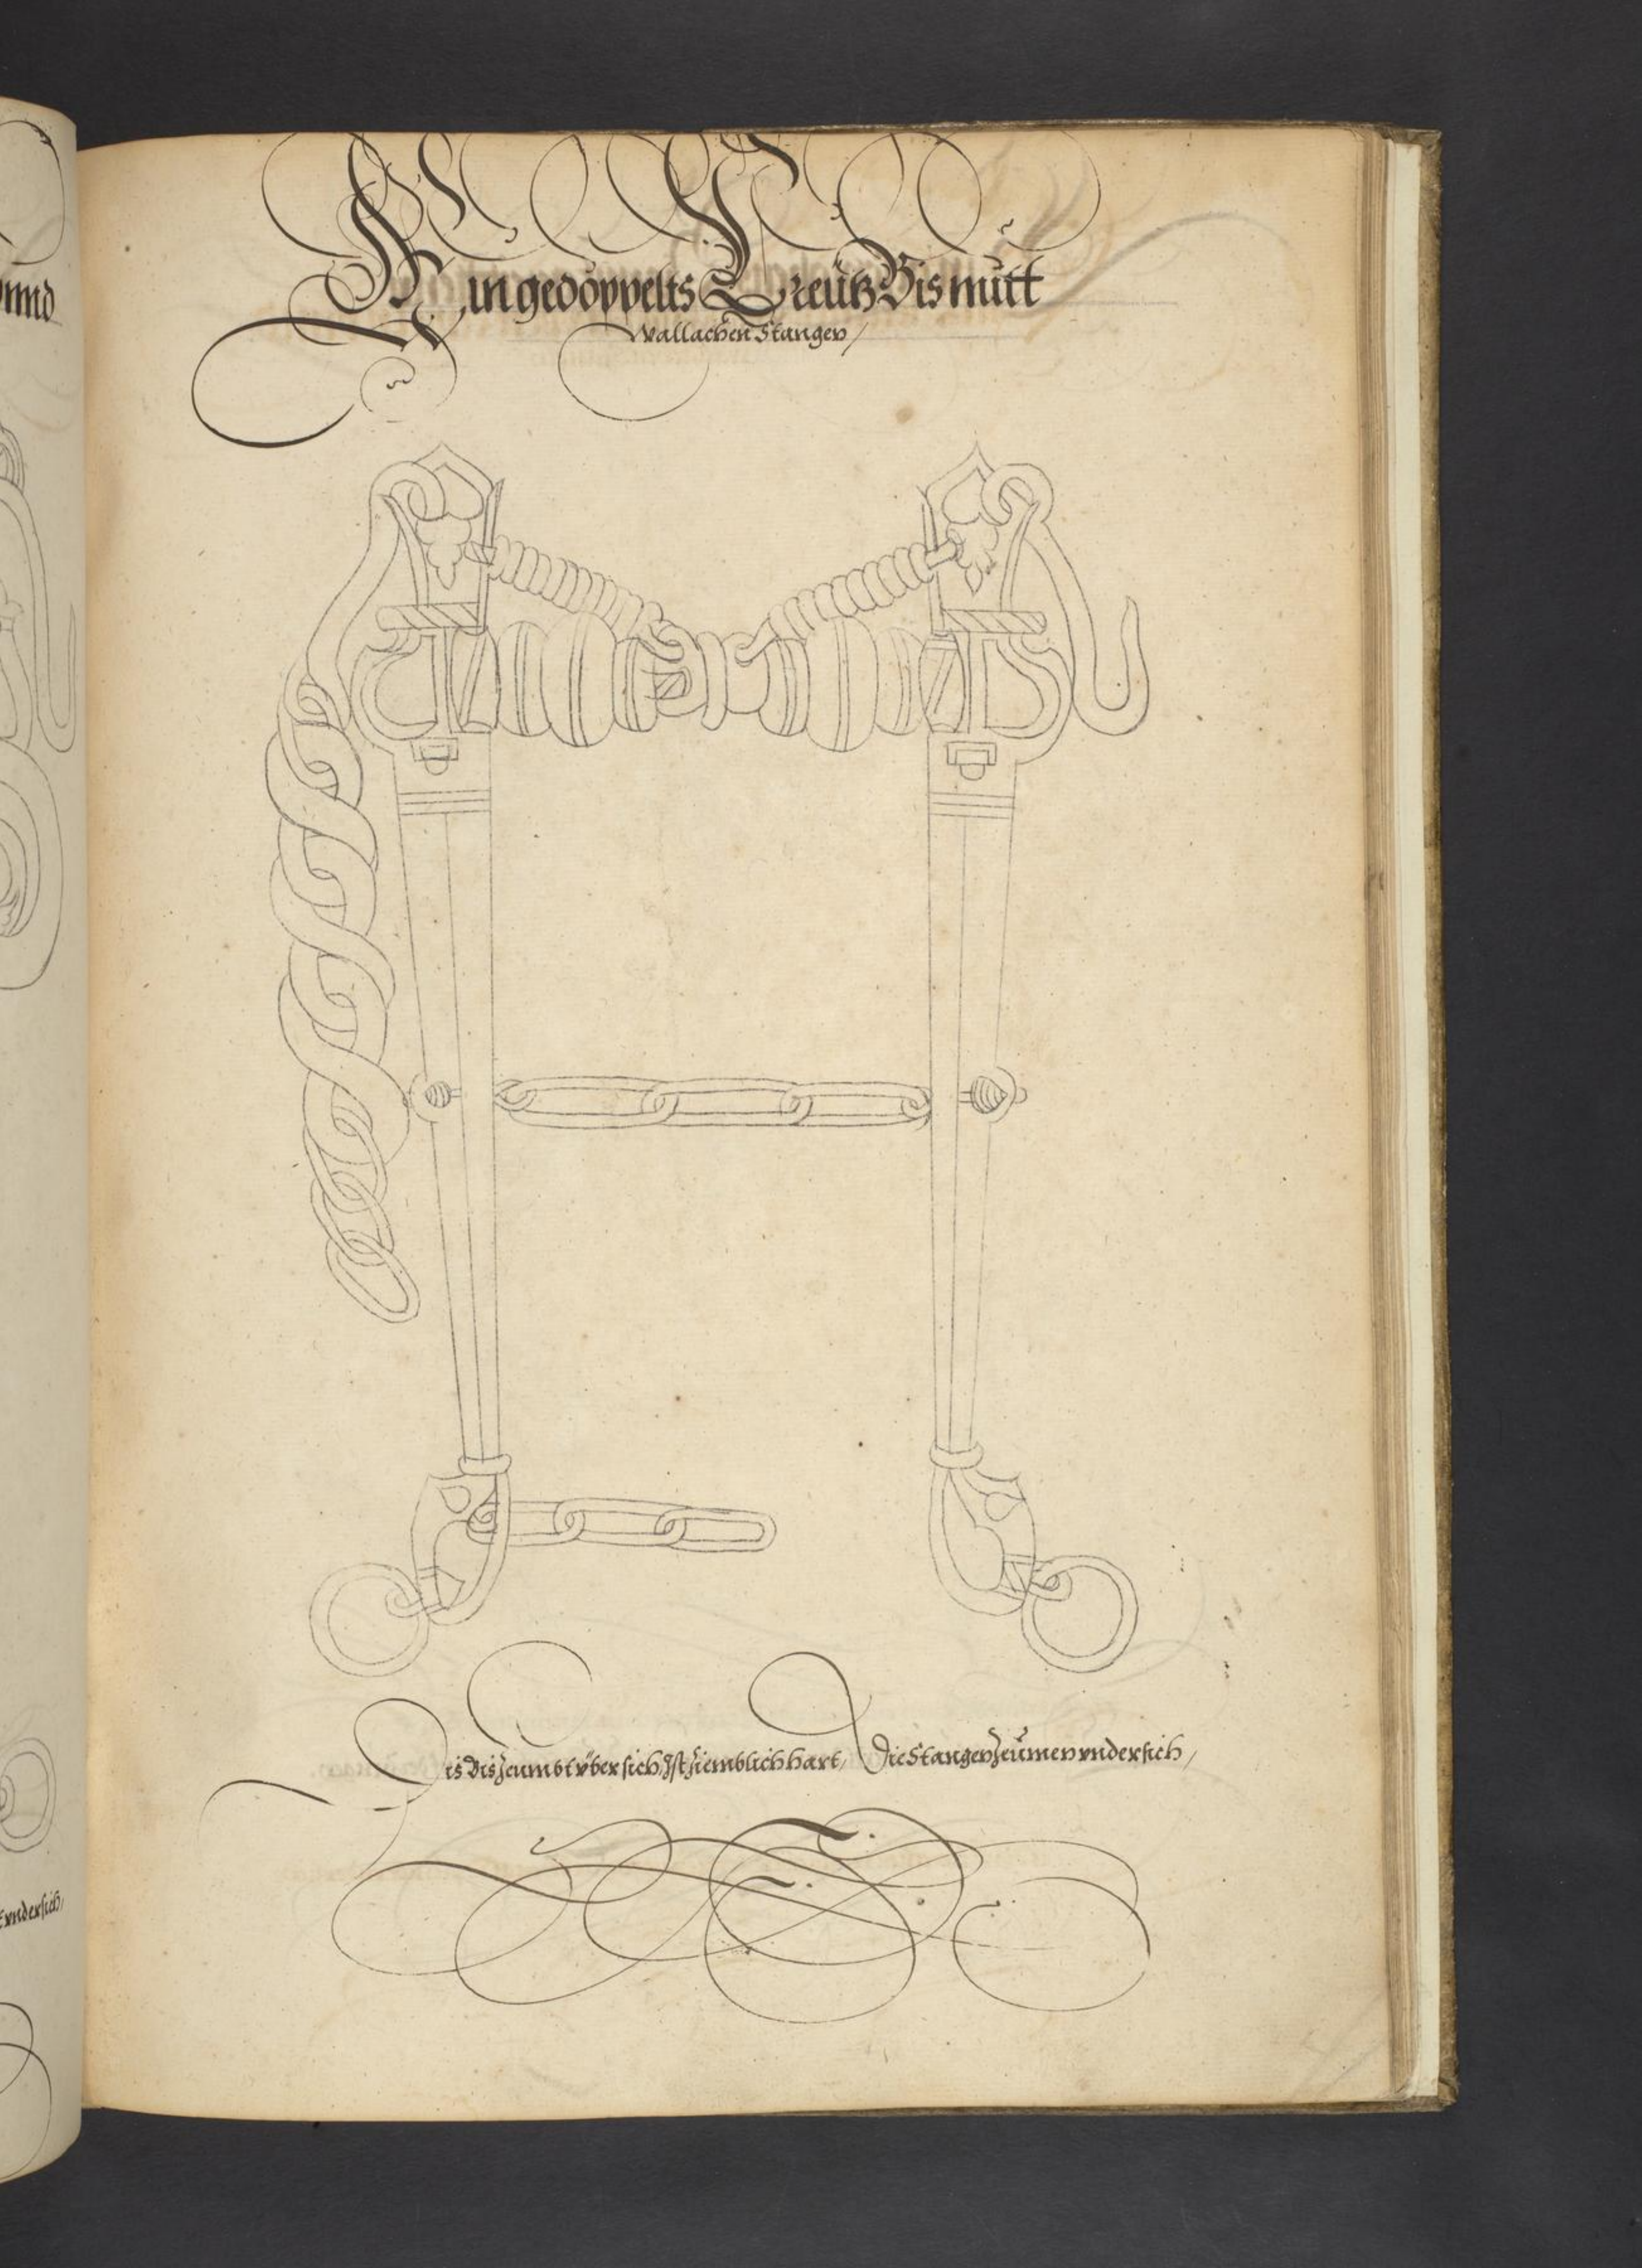 Ein gedoppelts Creutz Bis mitt
Wallachen Stangen /
Dis Bis zeumbt vber sich, Ist ziemblich hart, Die Stangen zeumen vnder sich /
vnnd
vndersich,